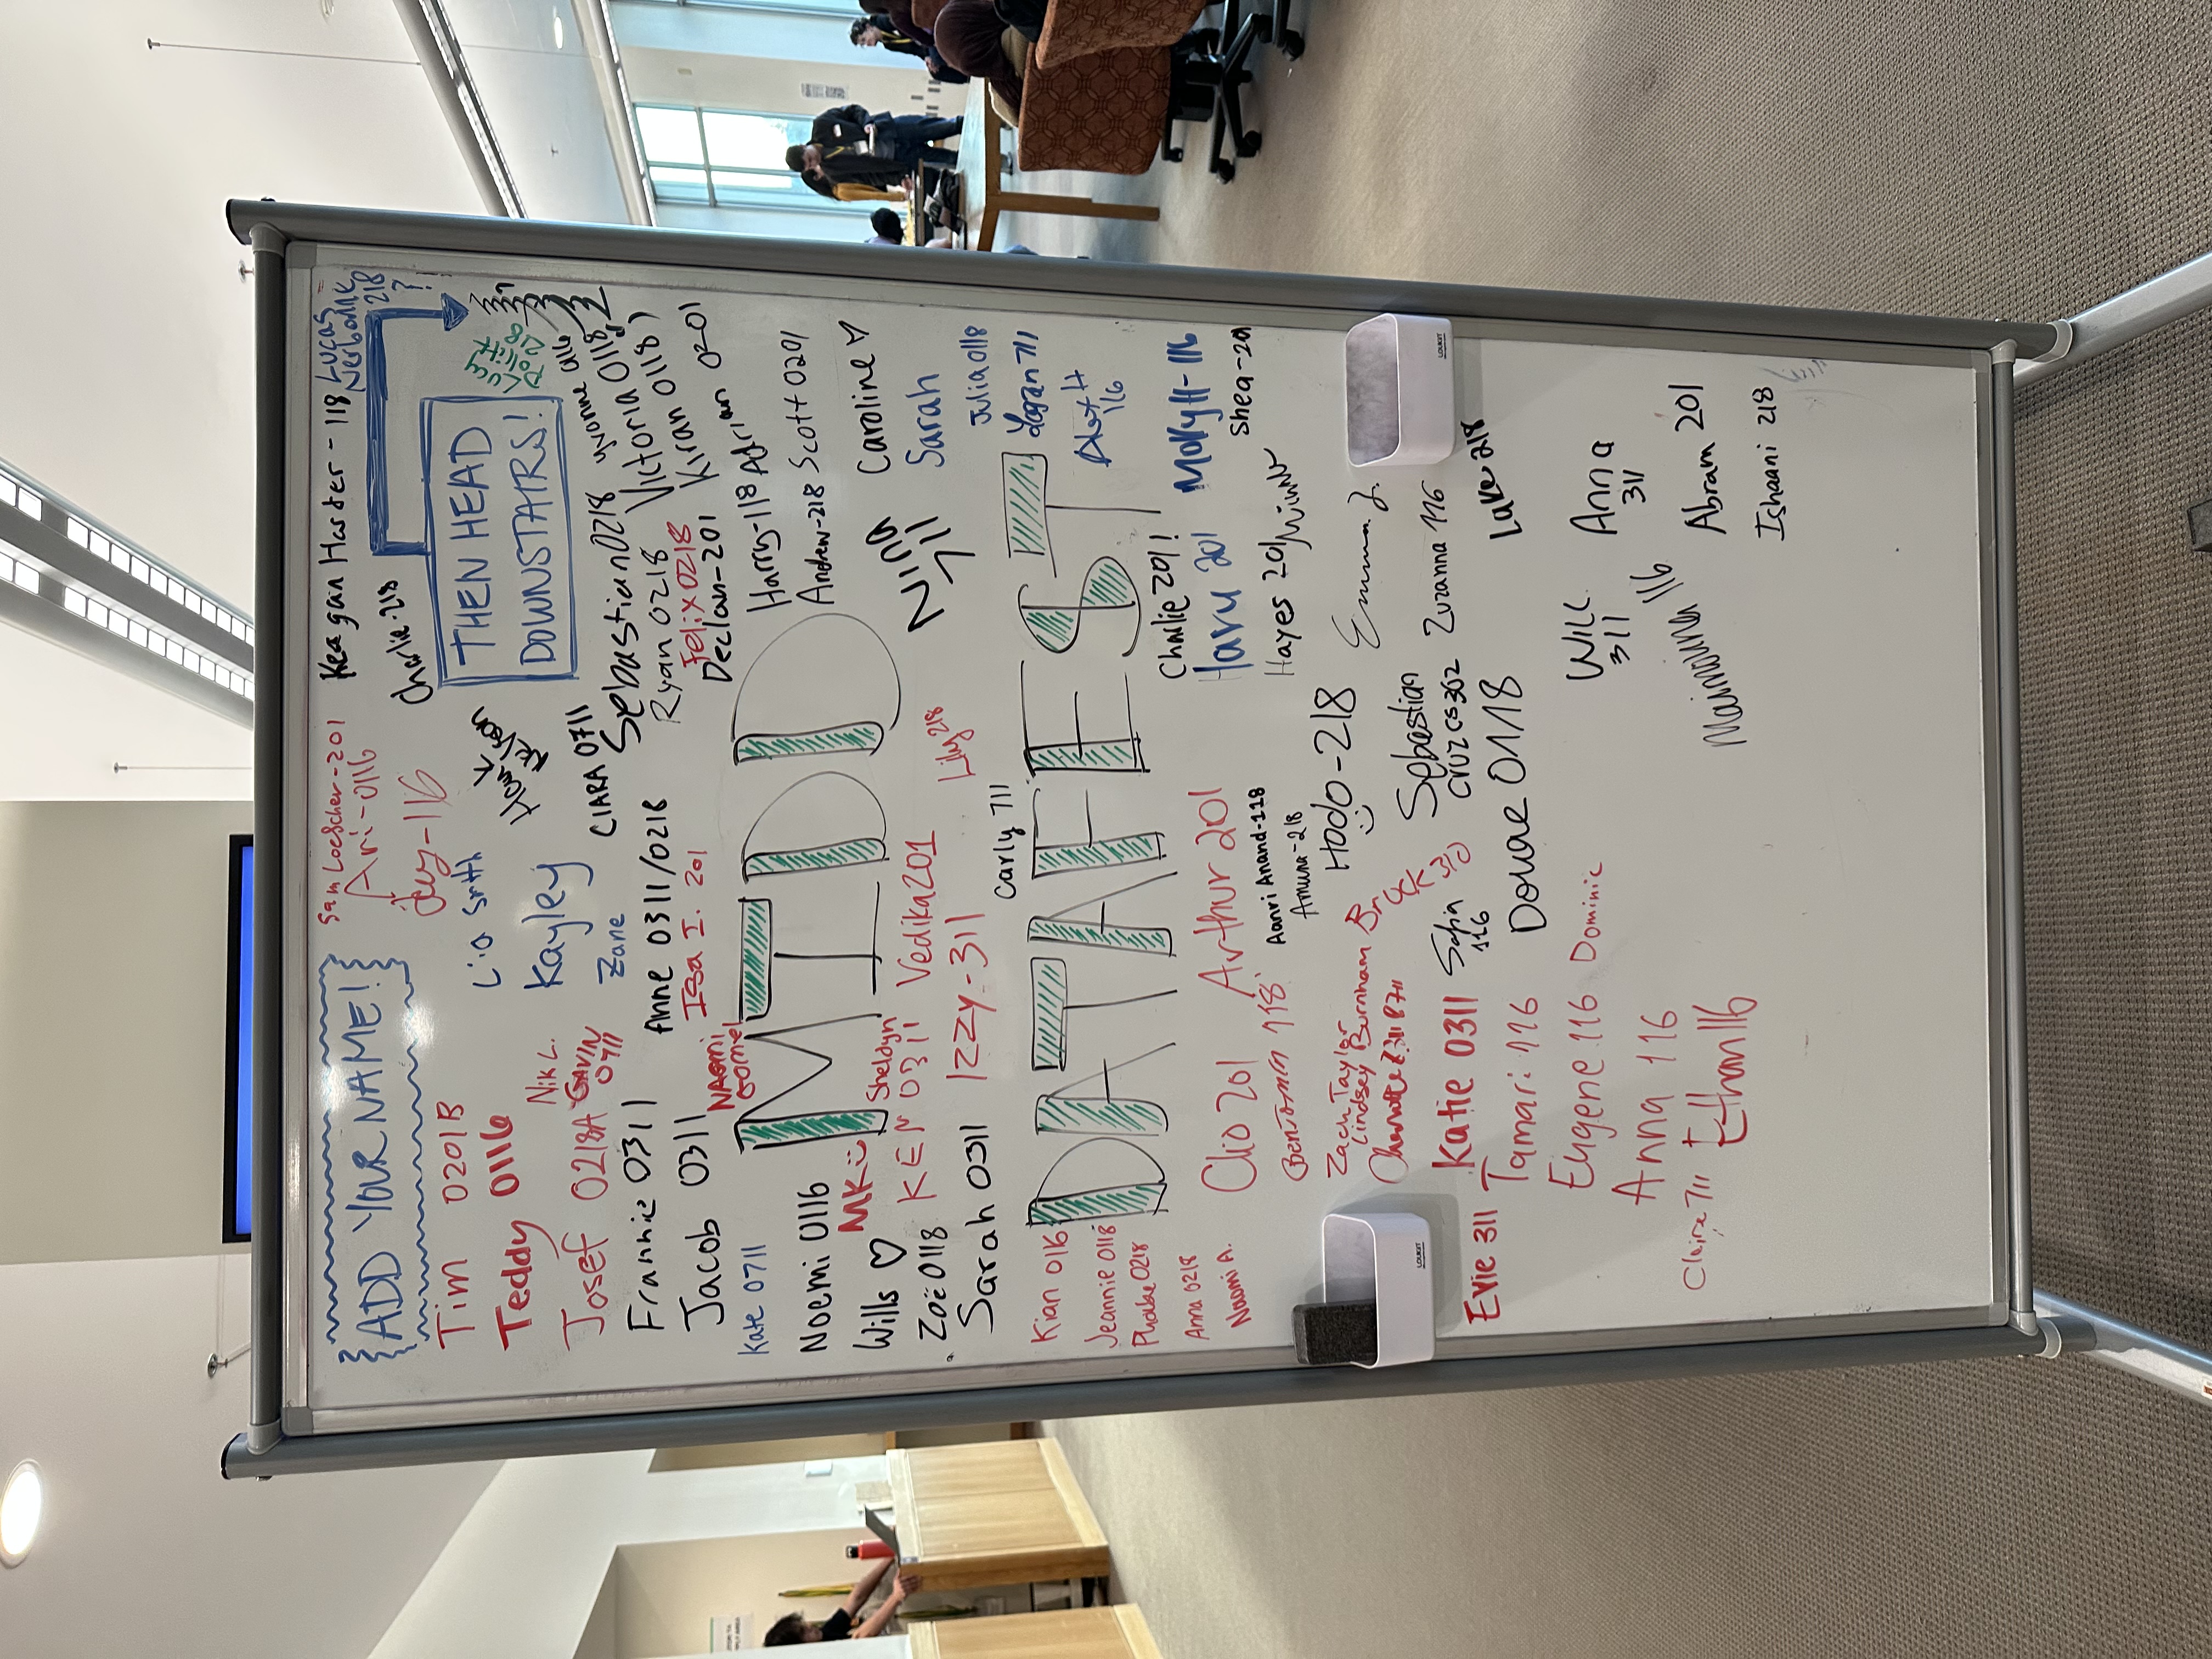 {ADD YOUR NAME!}
Sam Loescher-201
Keegan Harter - 118
Lucas
218
Ari-0116
Jay-116
Charlie-218
THEN HEAD
DOWNSTAIRS!
Lucy
Pollitt
218
Tim 0201B
Teddy 0116
Nik L.
Josef 0218A
GAVIN
0711
Frannie 0311
Jacob 0311
Kate 0711
Kayley
Zane
Hank
CIARA 0711
Anne 0311/0218
Isa I. 201
NAOMI
Sebastian 0218
Yvonne 0116
Ryan 0218
Victoria 0118
Felix 0218
Kiran 0118
Declan-201
Adrian 0201
Harry-118
Andrew-218
Scott 0201
MIDD
Noemi 0116
MK
Wills
Sheldyn
KEN 0311
Vedika 201
Zoë 0118
Sarah 0311
IZZY-311
Lily 218
Carly 711
Nina
711
Caroline
Sarah
Julia 0118
Logan 711
116
DATAFEST
Kian 0116
Jeannie 0118
Phoebe 0218
Anna 0218
Naomi A.
Clio 201
Arthur 201
Charlie 201!
Haru 201
Molly H-116
Shea-201
Hayes 201
118
Aanvi Anand-118
Amuna-218
Hodo-218
Zach Taylor
Lindsey Burnham
Charlotte
Emma J.
Zuzanna 116
Lake 218
Sebastian
Cruz CS302
Katie 0311
Sofia
116
Douae 0118
Evie 311
Tamari 116
Eugene 116
Dominic
Anna 116
Claire 711
Ethan 116
Will
311
Anna
311
Maimouna 116
Abram 201
Ishani 218
LOUKIT
LOUKIT